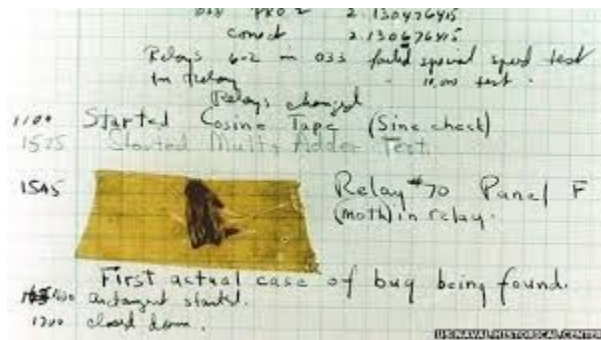 033 PRO 2 2.130476415
Correct 2.130676415
Relays 6-2 in 033 failed special speed test
In Relay 10,000 test.
Relays changed
1100 Started Cosine Tape (Sine check)
1525 Started Mult+ Adder Test.
1545 Relay #70 Panel F
(moth) in relay.
First actual case of bug being found.
1630 antangent started.
1700 closed down.
U.S. NAVAL HISTORICAL CENTER